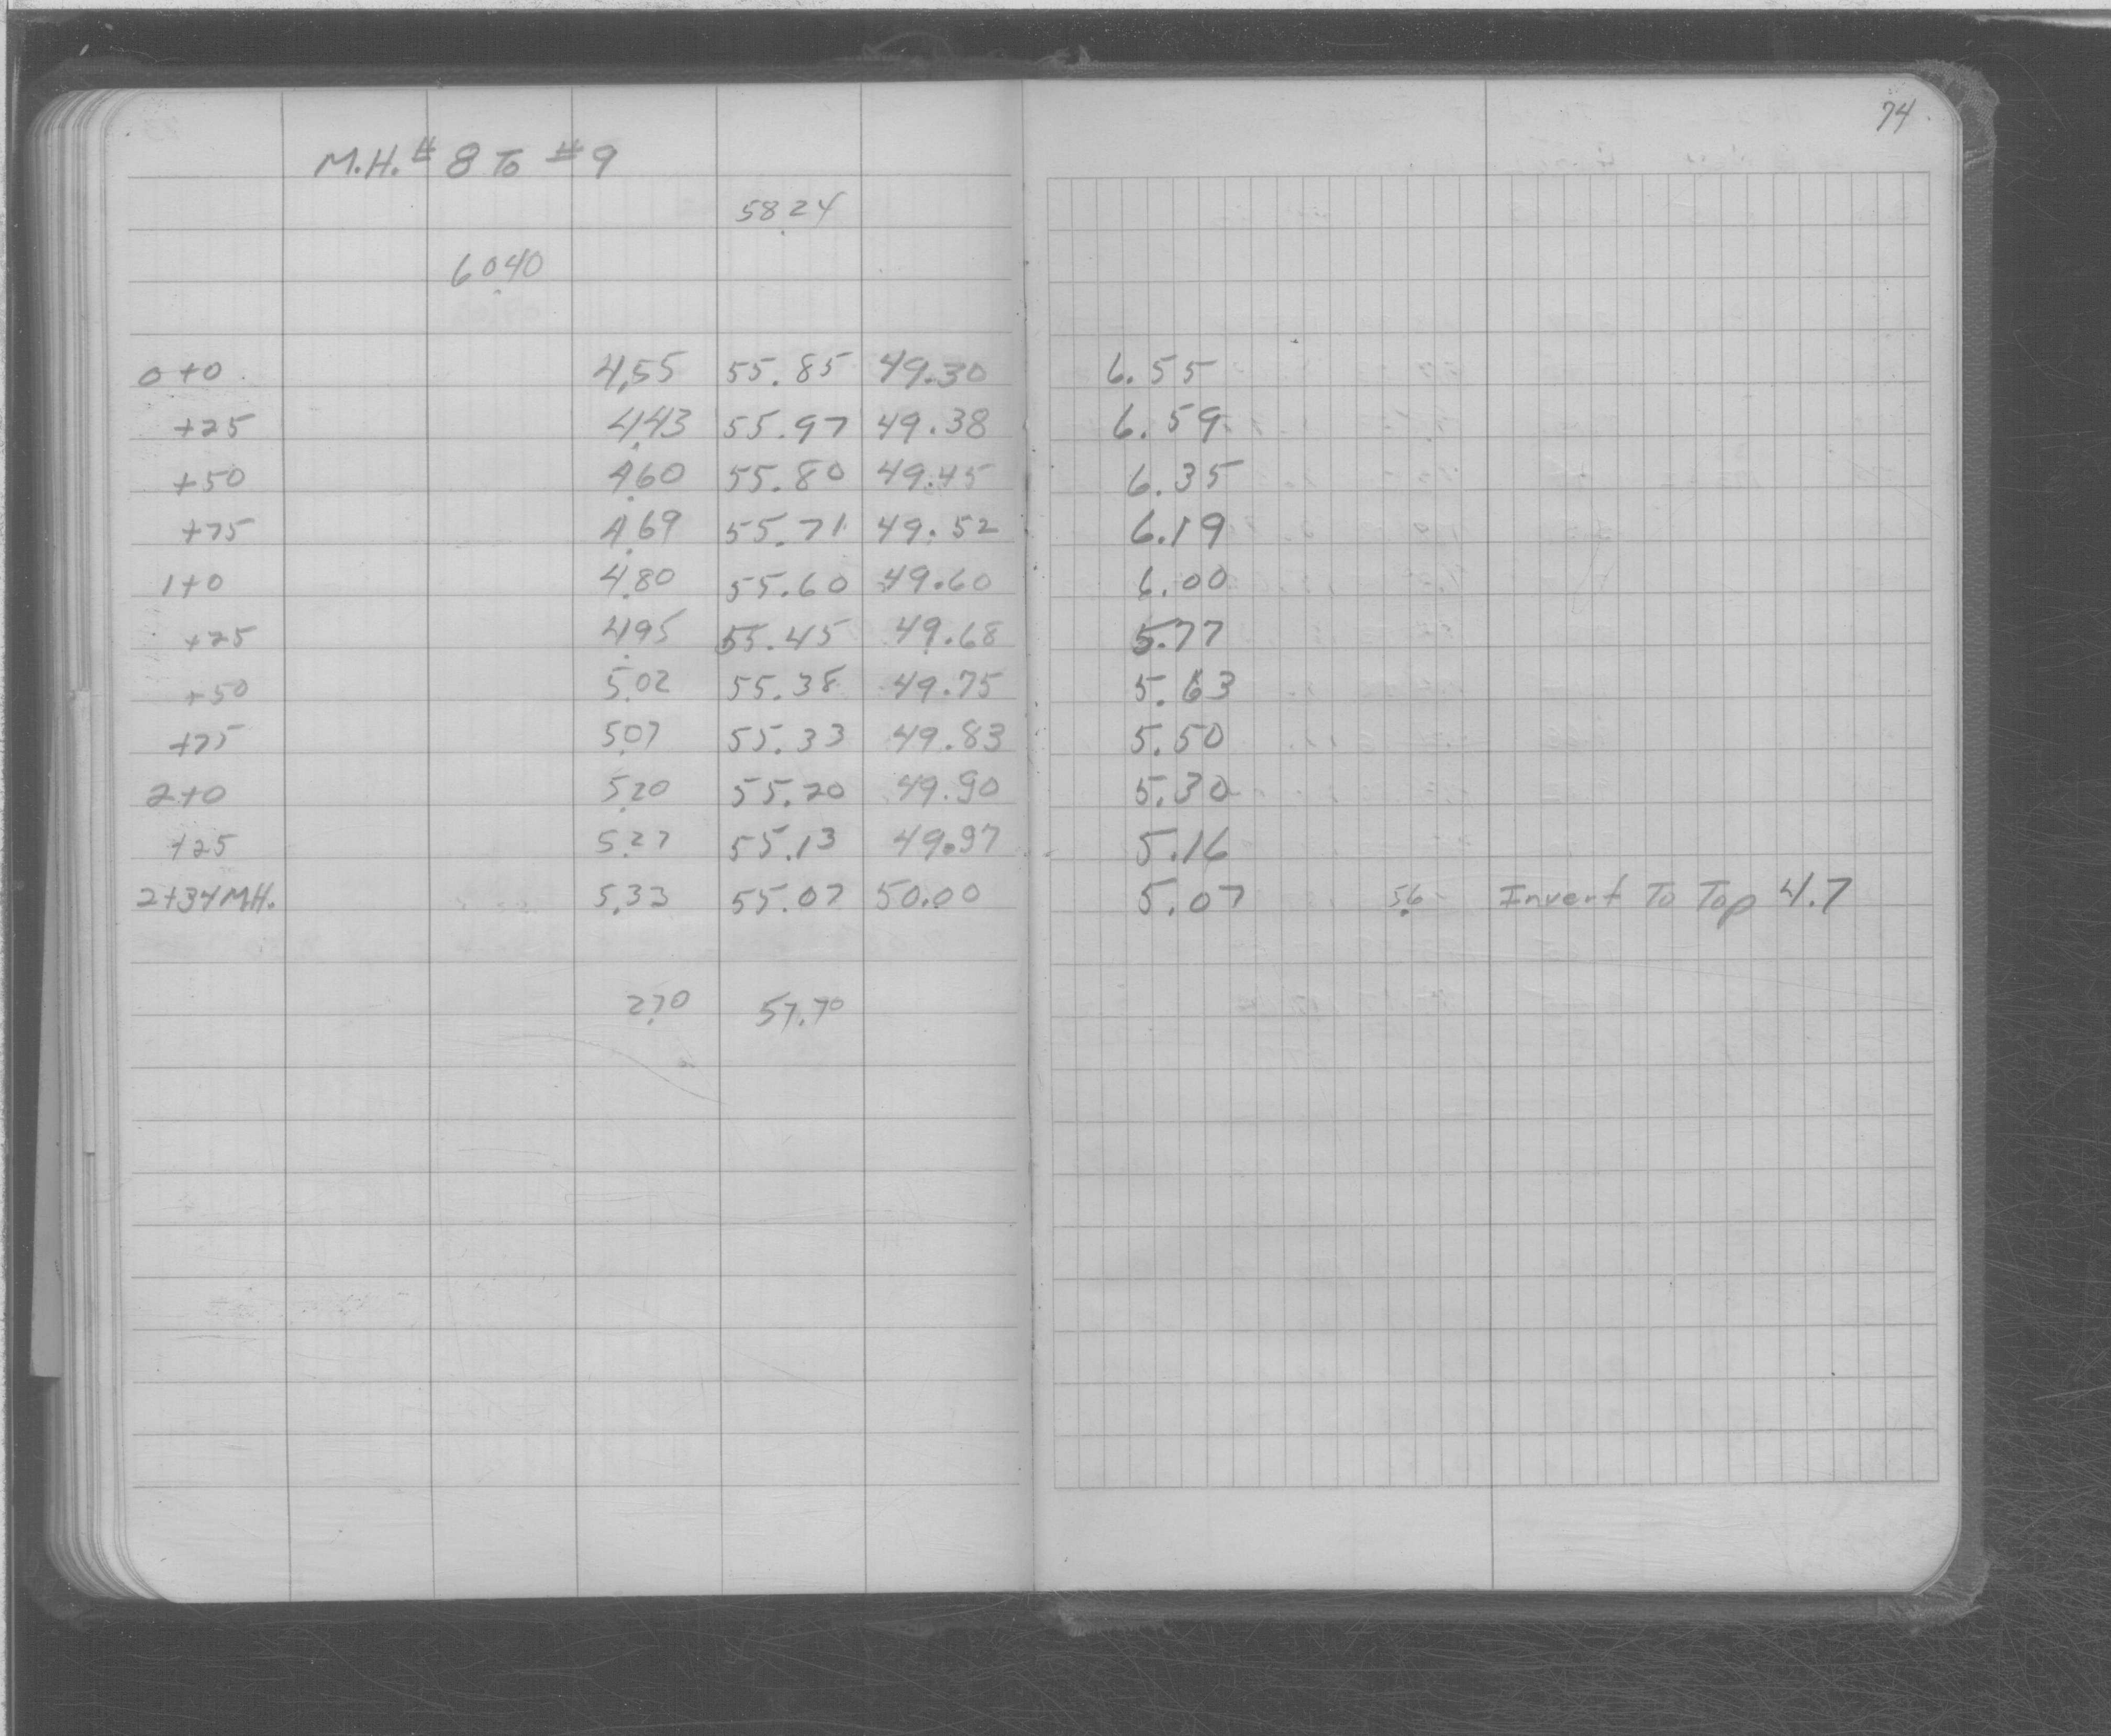 74
M.H. # 8 To # 9
58.24
60.40
0+0 4.55 55.85 49.30 6.55
+25 4.43 55.97 49.38 6.59
+50 4.60 55.80 49.45 6.35
+75 4.69 55.71 49.52 6.19
1+0 4.80 55.60 49.60 6.00
+25 4.95 55.45 49.68 5.77
+50 5.02 55.38 49.75 5.63
+75 5.07 55.33 49.83 5.50
2+0 5.20 55.20 49.90 5.30
+25 5.27 55.13 49.97 5.16
2+34 M.H. 5.33 55.07 50.00 5.07 5.6 Invert To Top 4.7
2.70 57.70